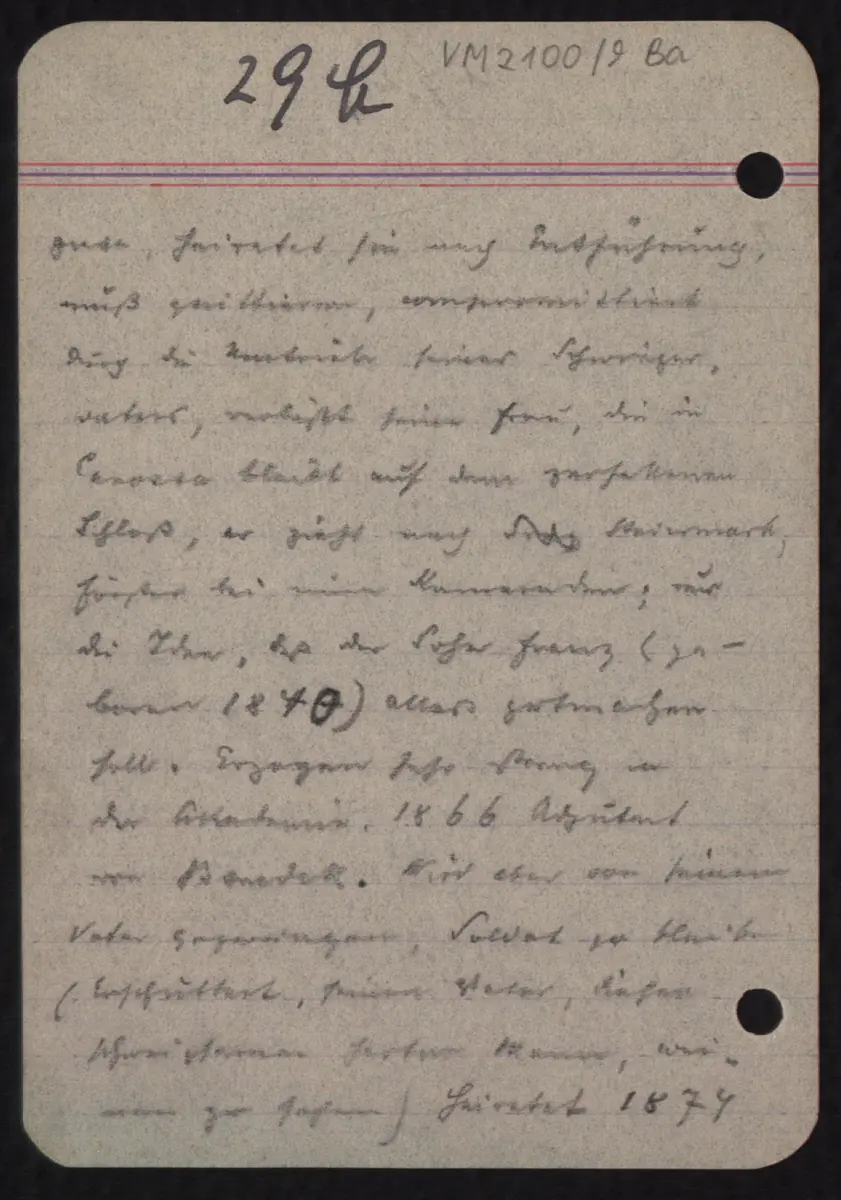 29 b
VM2100/9 Ba
heiratet sie nach Entführung,
muß quittieren, compromittiert
durch die Umtriebe seines Schwieger,
vaters, verläßt seine Frau, die in
Canossa bleibt auf dem zerfallenen
Schloß, er zieht nach Steiermark,
Förster bei einem Kameraden; nur
die Idee, daß der Sohn Franz (ge-
boren 1840) alles gutmachen
soll. Erzogen sehr streng in
der Akademie. 1866 Adjutant
von Benedek. Wird aber von seinem
Vater gezwungen, Soldat zu bleiben
(Erschüttert, seinen Vater, diesen
schweigsamen harten Mann, wei-
nen zu sehen) heiratet 1874